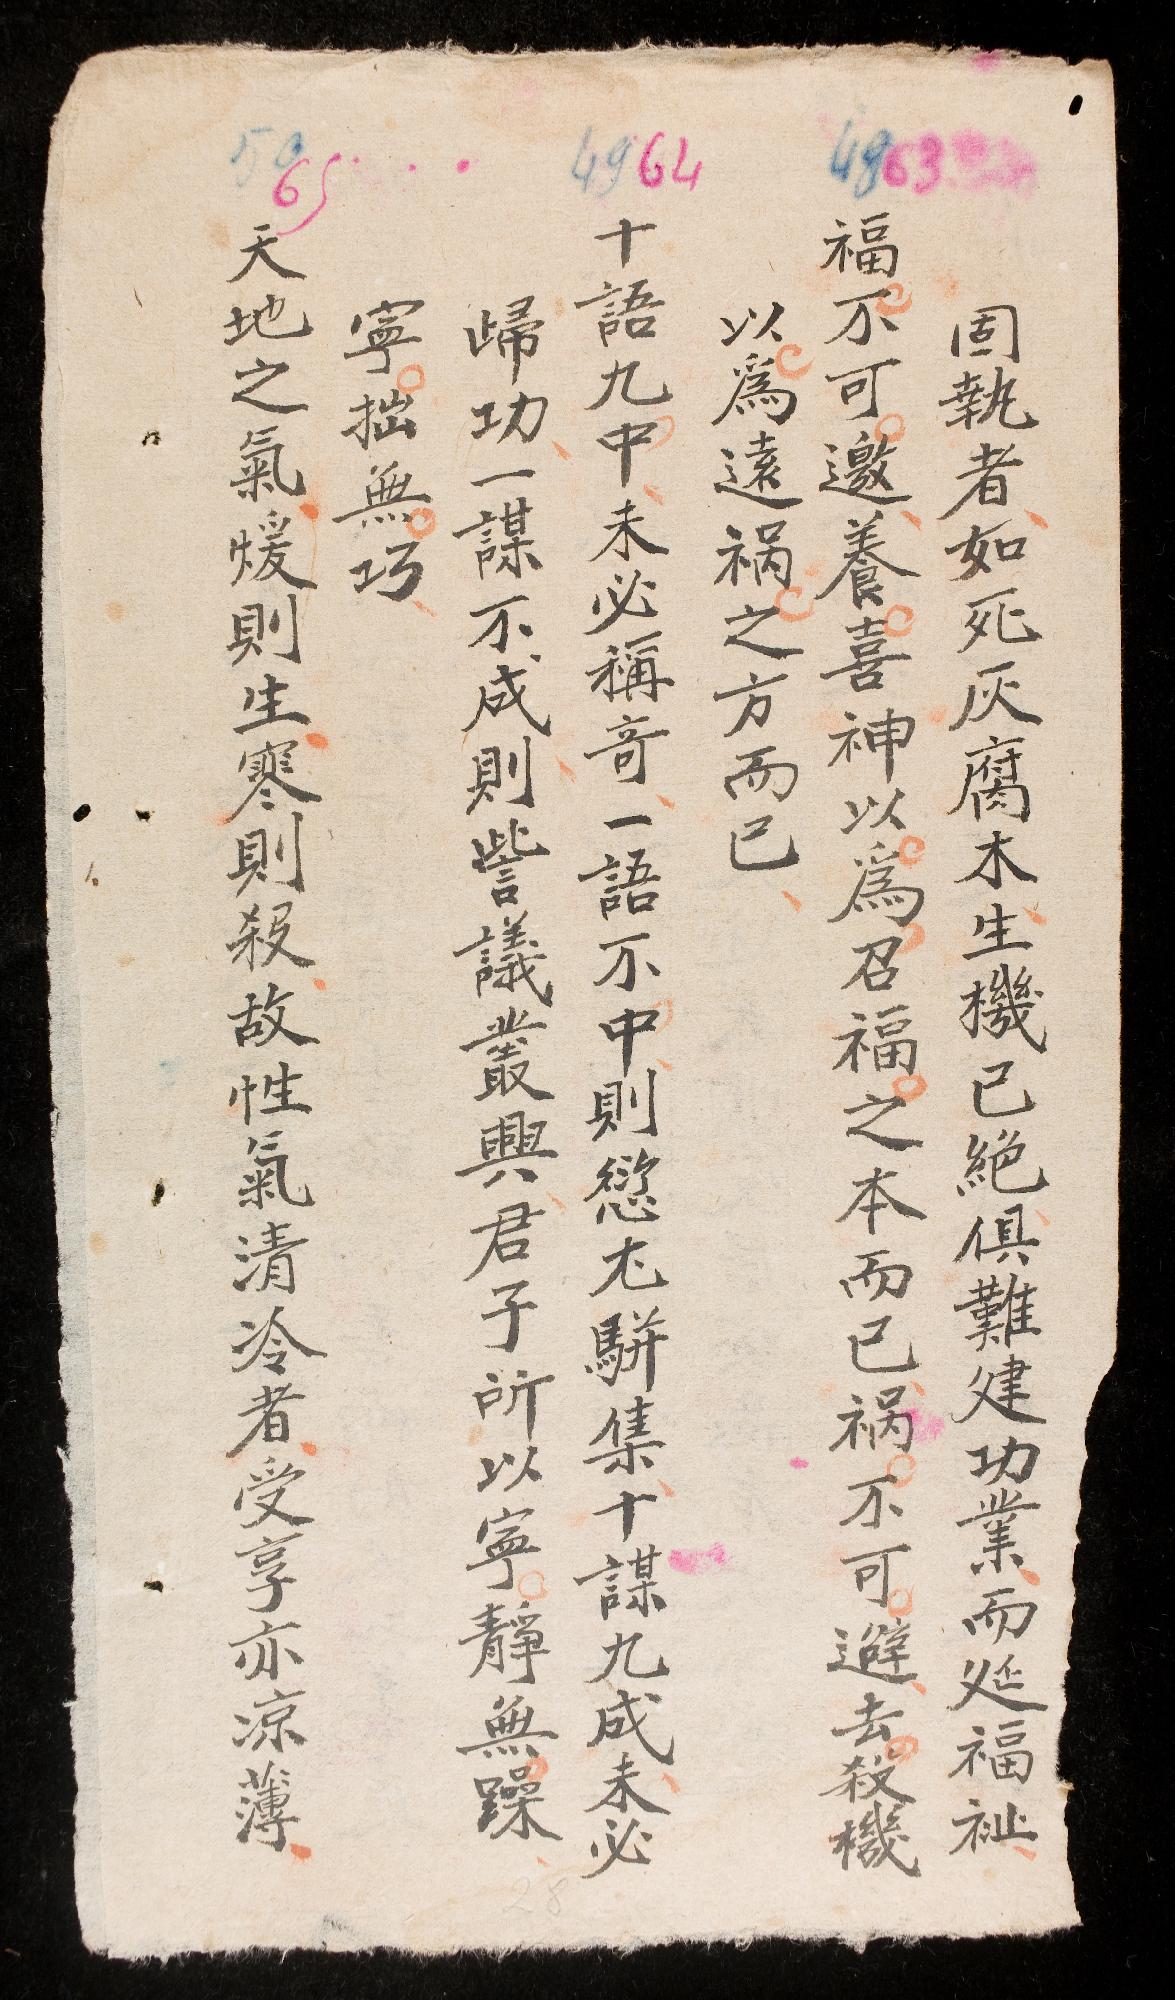 固執者如死灰腐木生機已絕俱難建功業而延福祉
4863
福不可邀養喜神以為召福之本而已禍不可避去殺機
以為遠禍之方而已
4964
十語九中未必稱奇一語不中則愆尤駢集十謀九成未必
歸功一謀不成則訾議叢興君子所以寧靜無躁
寧拙無巧
5065
天地之氣煖則生寒則殺故性氣清冷者受享亦凉薄
28